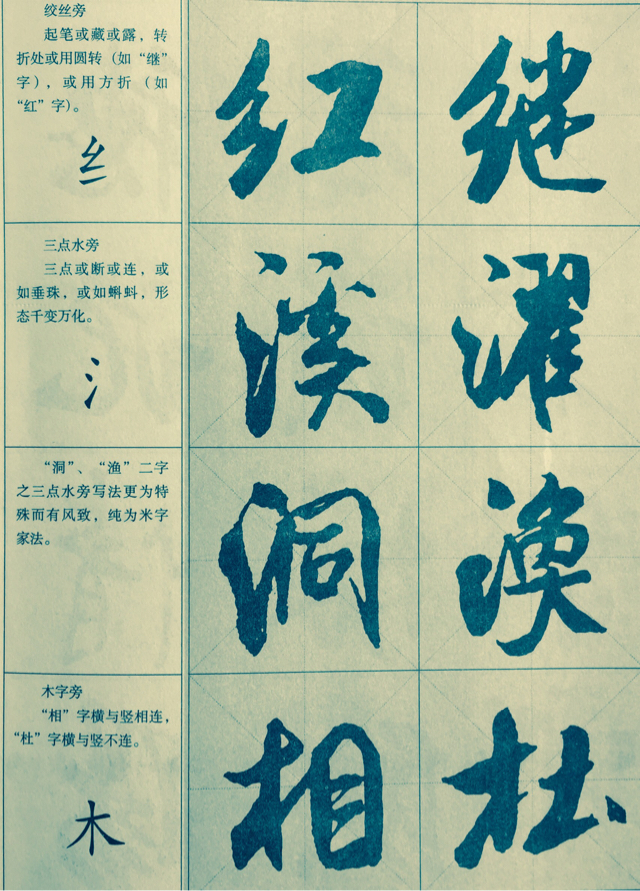 绞丝旁
起笔或藏或露，转
折处或用圆转（如“继”
字），或用方折（如
“红”字）。
纟
红 继
三点水旁
三点或断或连，或
如垂珠，或如蝌蚪，形
态千变万化。
氵
溪 濯
“洞”、“渔”二字
之三点水旁写法更为特
殊而有风致，纯为米字
家法。
洞 渔
木字旁
“相”字横与竖相连，
“杜”字横与竖不连。
木
相 杜